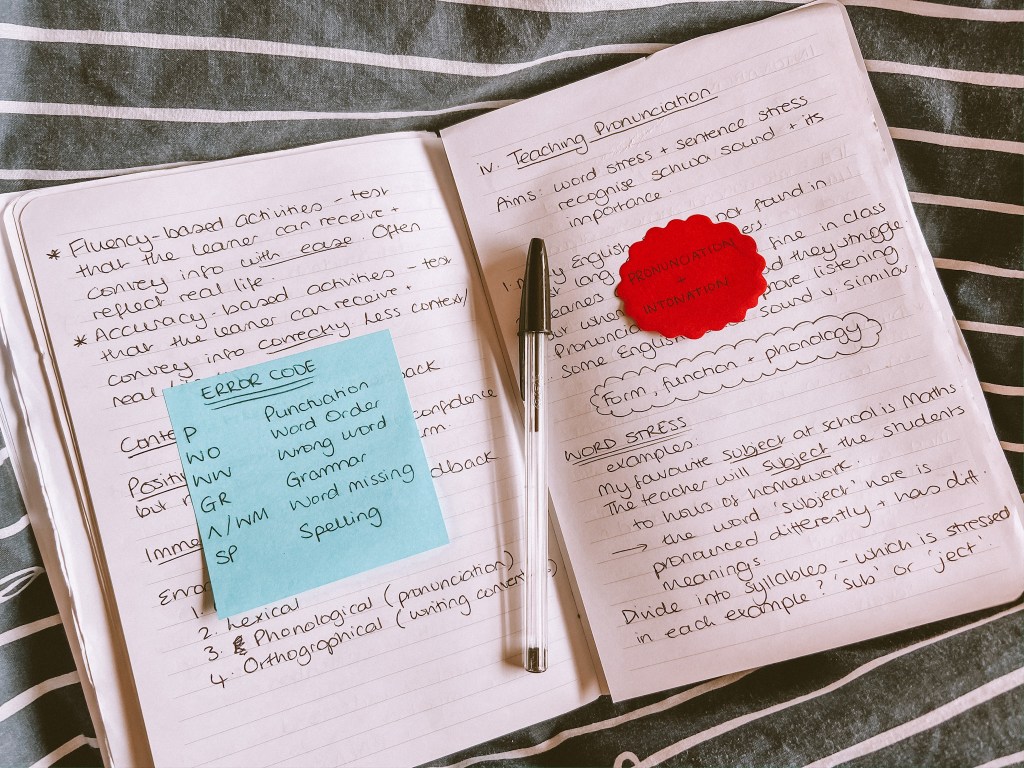 * Fluency-based activities - test
that the learner can receive +
convey info with ease. Often
reflect real life.
* Accuracy-based activities - test
that the learner can receive +
convey info correctly. Less context/
real
back
Conte
confidence
Positi
but
dback
Imme
Erro
1.
2. Lexical
3. Phonological (pronunciation)
4. Orthographical (writing
ERROR CODE
P Punctuation
WO Word Order
WW Wrong word
GR Grammar
Λ/WM Word missing
SP Spelling
iv. Teaching Pronunciation
Aims: word stress + sentence stress
recognise schwa sound + its
importance.
English not found in
lang
fine in class
but when they struggle
listening
Some English sound v. similar.
PRONUNCIATION
+
INTONATION
Form, function + phonology
WORD STRESS
examples:
My favourite subject at school is Maths
The teacher will subject the students
to hours of homework.
→ the word 'subject' here is
pronounced differently + has diff.
meanings.
Divide into syllables - which is stressed
in each example? 'sub' or 'ject'.